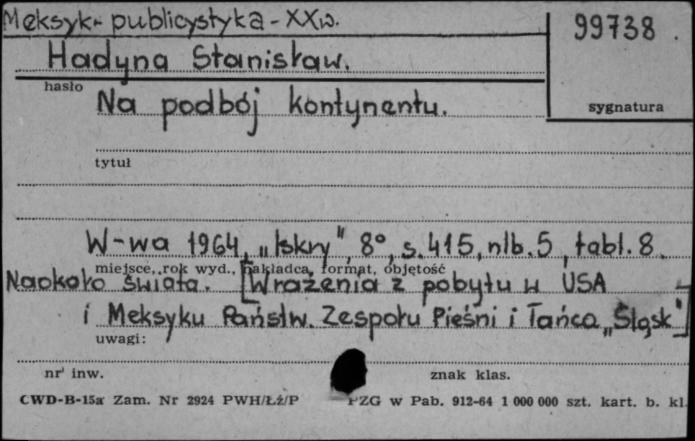 Meksyk - publicystyka - XX w.
99738.
Hadyna Stanisław.
hasło
Na podbój kontynentu.
sygnatura
tytuł
W-wa 1964, „Iskry", 8°, s. 415, nlb. 5, tabl. 8.
miejsce, rok wyd., nakładca, format, objętość
Naokoło świata. [Wrażenia z pobytu w USA
i Meksyku Państw. Zespołu Pieśni i Tańca „Śląsk"]
uwagi:
nr inw.
znak klas.
CWD-B-15a Zam. Nr 2924 PWH/Łż/P PZG w Pab. 912-64 1 000 000 szt. kart. b. kl.